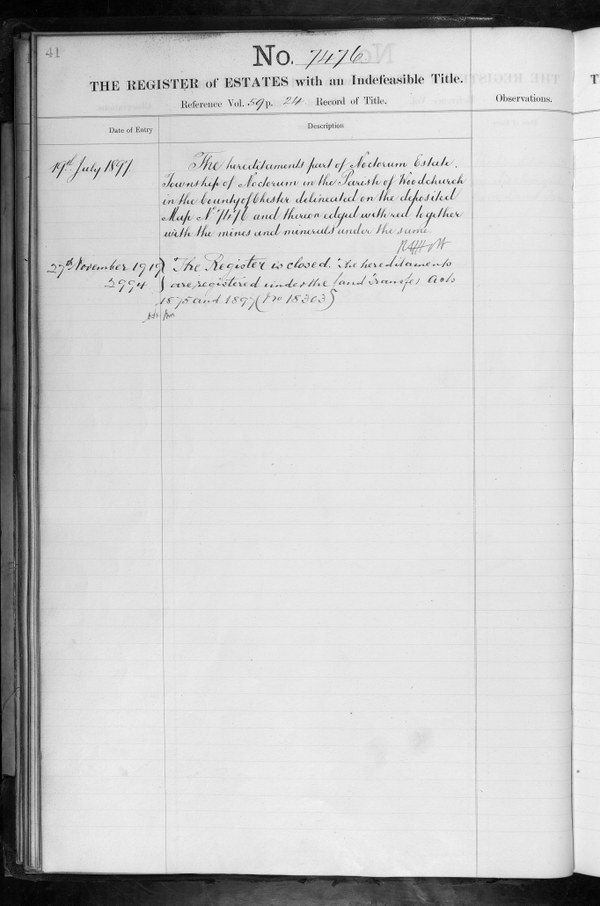 41
No. 7476
THE REGISTER of ESTATES with an Indefeasible Title.
Reference Vol. 59 p. 24 Record of Title.
Observations.
Date of Entry
Description
19th July 1897.
The hereditaments part of Noctorum Estate.
Township of Noctorum in the Parish of Woodchurch
in the County of Chester delineated on the deposited
Map No 7476 and thereon edged with red together
with the mines and minerals under the same.
27th November 1919
The Register is closed. The hereditaments
2994
are registered under the Land Transfer Acts
1875 and 1897 (No 18303)
T